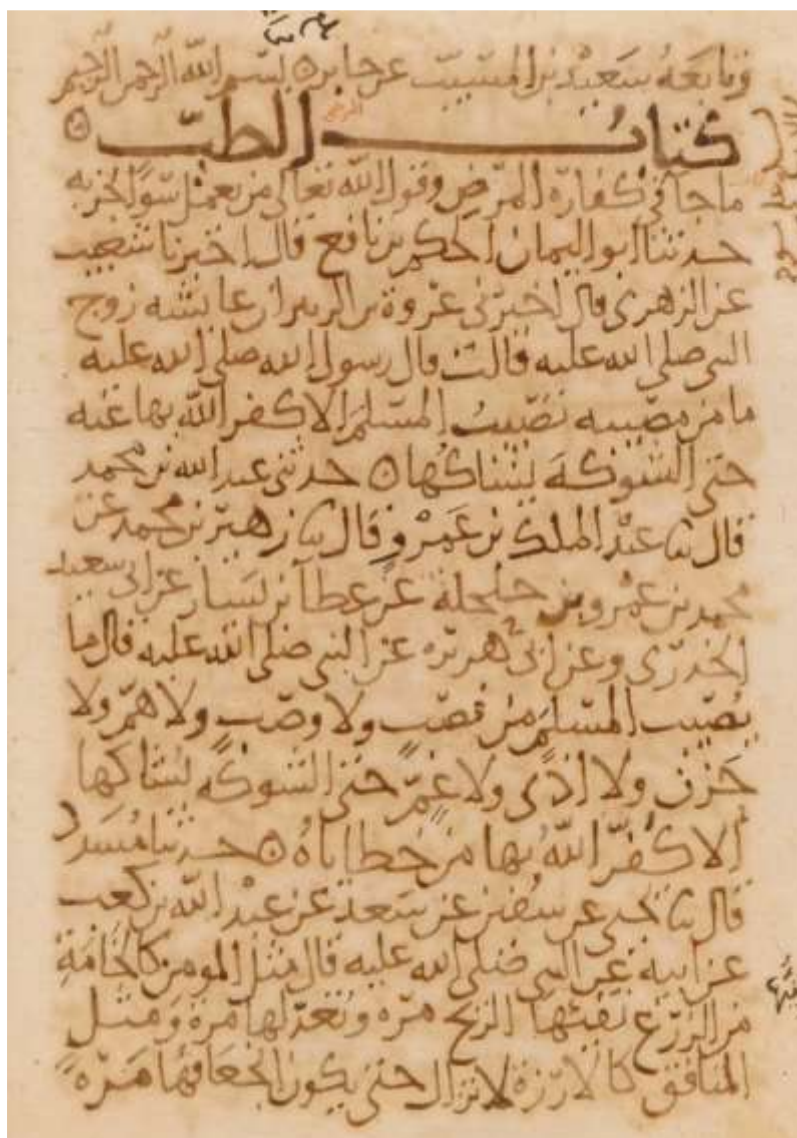 وتابعه سعيد بن المسيب عن جابر ه بسم الله الرحمن الرحيم
كتاب الطب
ما جا في كفارة المرض وقول الله تعالى من يعمل سوا يجز به
حدثنا ابو اليمان الحكم بن نافع قال اخبرنا شعيب
عن الزهري قال اخبرني عروة بن الزبير ان عايشه زوج
النبي صلى الله عليه قالت قال رسول الله صلى الله عليه
ما من مصيبه تصيب المسلم الا كفر الله بها عنه
حتى الشوكة يشاكها ه حدثني عبد الله بن محمد
قال نا عبد الملك بن عمرو قال نا زهير بن محمد عن
محمد بن عمرو بن حلحلة عن عطا بن يسار عن ابي سعيد
الخدري وعن ابي هريره عن النبي صلى الله عليه قال ما
يصيب المسلم من نصب ولا وصب ولا هم ولا
حزن ولا اذى ولا غم حتى الشوكة يشاكها
الا كفر الله بها من خطاياه ه حدثنا مسدد
قال نا يحيى عن سفين عن سعد عن عبد الله بن كعب
عن ابيه عن النبي صلى الله عليه قال مثل المومن كالخامة
من الزرع تفيئها الريح مره وتعدلها مرة ومثل
المنافق كالارزة لا تزال حتى يكون انجعافها مرة